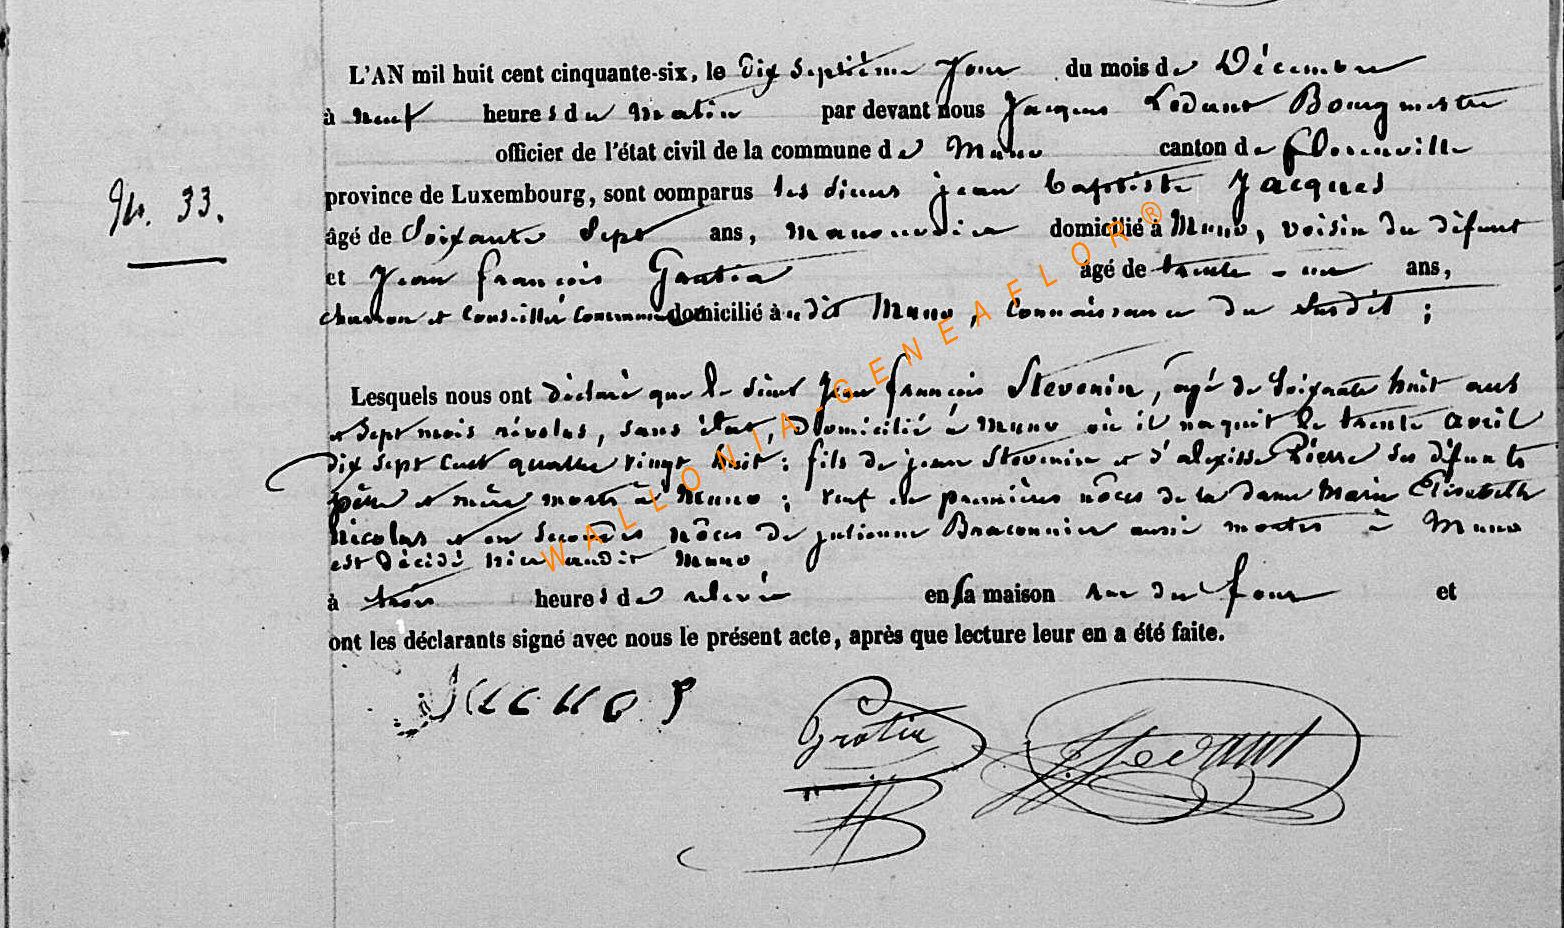 L'AN mil huit cent cinquante-six, le dix septième jour du mois de Décembre
à neuf heures du matin par devant nous Jacques Ledant Bourgmestre
officier de l'état civil de la commune de Muno canton de Florenville
N°. 33.
province de Luxembourg, sont comparus les sieurs jean baptiste Jacques
âgé de Soixante Sept ans, manouvrier domicilié à Muno, voisin du défunt
et Jean françois Gratia âgé de trente-un ans,
charron et Conseiller Communal domicilié à udit Muno, Connaissance du susdit ;
Lesquels nous ont déclaré que le sieur Jean françois Stevenin, âgé de Soixante huit ans
et Sept mois révolus, sans état, domicilié à Muno où il naquit le trente avril
dix sept cent quatre vingt huit ; fils de jean Stevenin et d'alexisse Pierre ses défunts
père et mère morts à Muno ; veuf en premières nôces de la dame Marie Elisabeth
Nicolas et en secondes nôces de julienne Braconnier aussi mortes à Muno
est décédé hier audit Muno,
à trois heures de relevée en sa maison rue du four et
ont les déclarants signé avec nous le présent acte, après que lecture leur en a été faite.
Gratia JLedant
WALLONIA-GENEAFLOR®